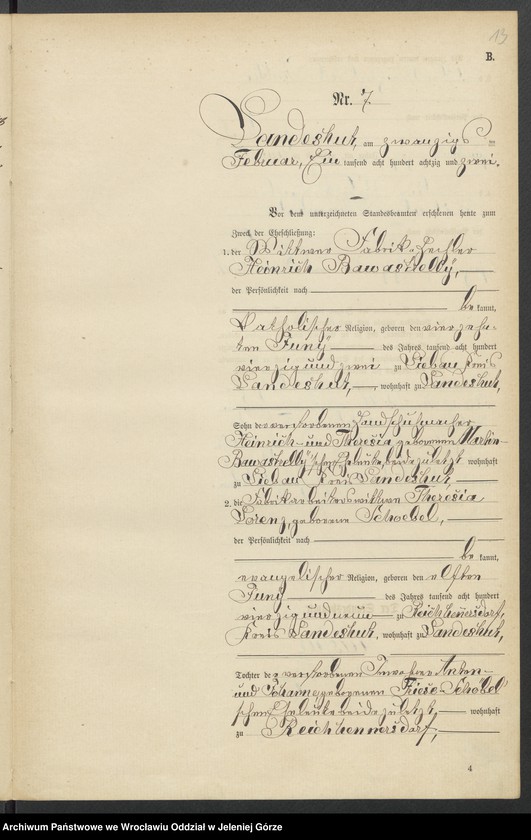 13
B.
Nr. 7.
Landeshut, am zwanzigsten
Februar, Ein tausend acht hundert achtzig und zwei.
Vor dem unterzeichneten Standesbeamten erschienen heute zum
Zweck der Eheschließung:
1. der Wittwer Fabrik-Hechler
Heinrich
der Persönlichkeit nach
be kannt,
katholischer Religion, geboren den vierzehn-
ten Juny des Jahres tausend acht hundert
vierzig und zwei zu Liebau Kreis
Landeshut, wohnhaft zu Landeshut,
Sohn der verstorbenen Handschuhmacher
Heinrich und Theresia geborenen Martin-
schen Eheleute, beide zuletzt wohnhaft
zu Liebau Kreis Landeshut,
2. die Fabrikarbeiterswittwe Theresia
Lorenz, geborene Schoebel,
der Persönlichkeit nach
be kannt,
evangelischer Religion, geboren den elften
Juny des Jahres tausend acht hundert
vierzig und neun zu Reichhennersdorf,
Kreis Landeshut, wohnhaft zu Landeshut,
Tochter der verstorbenen Inwohner Anton
und Johanne geborenen Friese-Schöbel'
schen Eheleute beide zuletzt wohnhaft
zu Reichhennersdorf,
4
Archiwum Państwowe we Wrocławiu Oddział w Jeleniej Górze